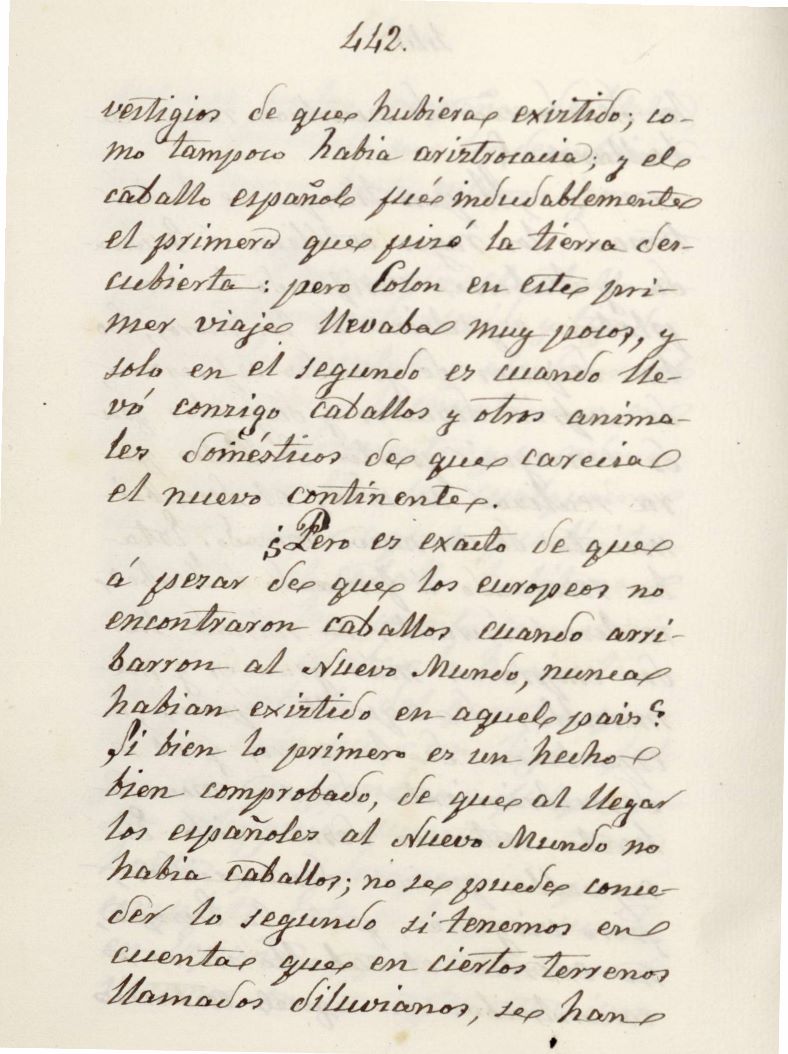 442.
vestigios de que hubiera existido; co-
mo tampoco habia aristrocacia; y el
caballo español fué indudablemente
el primero que pizó la tierra des-
cubierta: pero Colon en este pri-
mer viaje llevaba muy pocos, y
solo en el segundo es cuando lle-
vó consigo caballos y otros anima-
les domésticos de que carecia
el nuevo continente.
¿Pero es exacto de que
á pesar de que los europeos no
encontraron caballos cuando arri-
barron al Nuevo Mundo, nunca
habian existido en aquel pais?
Si bien lo primero es un hecho
bien comprobado, de que al llegar
los españoles al Nuevo Mundo no
habia caballos; no se puede conce-
der lo segundo si tenemos en
cuenta que en ciertos terrenos
llamados diluvianos, se han